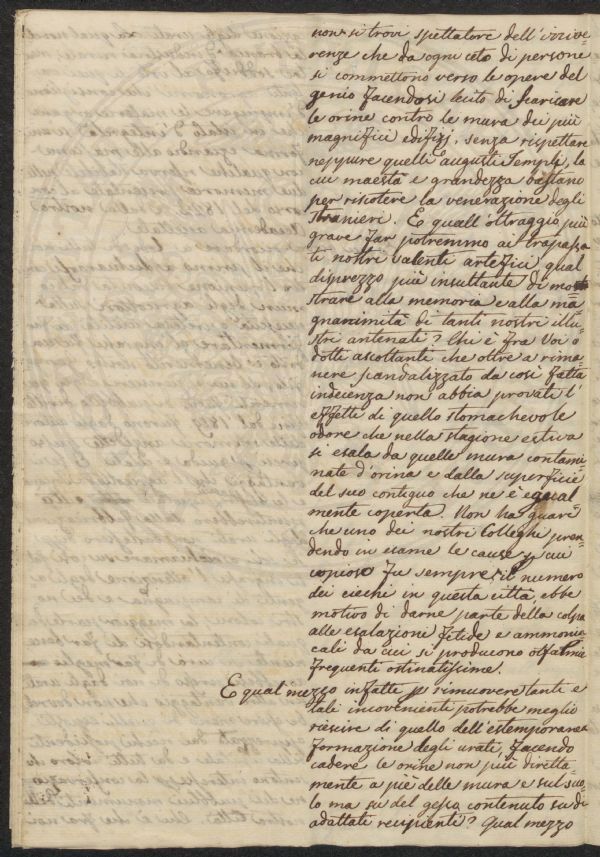 non si trovi spettatore dell'irrive=
renze che da ogni ceto di persone
si commettono verso le opere del
genio facendosi lecito di scaricare
le orine contro le mura dei più
magnifici edifizj, senza rispettare
neppure quelli augusti Templi, la
cui maestà e grandezza bastano
per riscotere la venerazione degli
stranieri. E quall'oltraggio più
grave far potremmo ai trapassa
ti nostri valenti artefici, qual
disprezzo più insultante di mo
strare alla memoria e alla ma=
gnanimità di tanti nostri illu=
stri antenati? Chi è fra Voi o
dotti ascoltanti che oltre a rima
nere scandalizzato da così fatta
indecenza non abbia provati l'
effetti di quello stomachevole
odore che nella stagione estiva
si esala da quelle mura contami
nate d'orina e dalla superficie
del suo contiguo che ne è egual
mente coperta. Non ha guari
che uno dei nostri Colleghi pren=
dendo in esame le cause p cui
copioso fu sempre il numero
dei ciechi in questa città, ebbe
motivo di darne parte della colpa
alle esalazioni fetide e ammonia
cali da cui si producono oftalmie
frequenti ostinatissime.
E qual mezzo infatti p rimuovere tanti e
tali inconvenienti potrebbe meglio
riescire di quello dell'estemporanea
formazione degli urati, facendo
cadere le orine non più diretta=
mente a piè delle mura e sul suo=
lo ma su del gesso contenuto in di
adattati recipienti? Qual mezzo